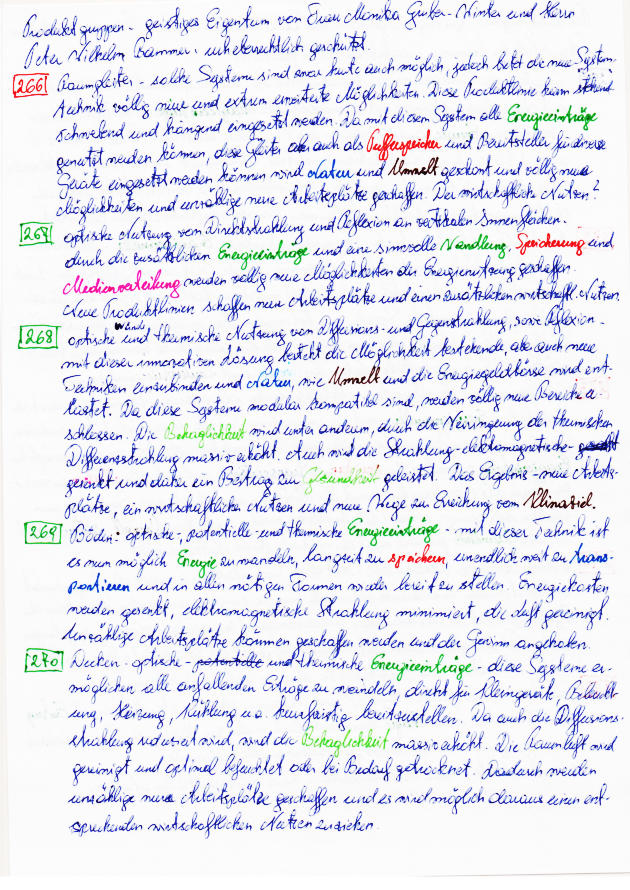 Produktgruppen - geistiges Eigentum von Frau Monika Gruber-Winter und Herrn
Peter Wilhelm Bammer - urheberrechtlich geschützt.
266 Raumgleiter - solche Systeme sind zwar heute auch möglich, jedoch bietet die neue System-
Technik völlig neue und extrem erweiterte Möglichkeiten. Diese Produktlinie kann stehend
schwebend und hängend eingesetzt werden. Da mit diesem System alle Energieeinträge
genutzt werden können, diese Gleiter aber auch als Pufferspeicher und Bereitsteller für diverse
Geräte eingesetzt werden können wird Natur und Umwelt geschont und völlig neue
Möglichkeiten und unzählige neue Arbeitsplätze geschaffen. Der wirtschaftliche Nutzen?
267 optische Nutzung von Direktstrahlung und Reflexion an vertikalen Innenflächen.
durch die zusätzlichen Energieeinträge und eine sinnvolle Wandlung, Speicherung und
Medienverteilung werden völlig neue Möglichkeiten der Energienutzung geschaffen.
Neue Produktlinien schaffen neue Arbeitsplätze und einen zusätzlichen wirtschaftl. Nutzen.
268 Wände optische und thermische Nutzung von Diffusions- und Gegenstrahlung, sowie Reflexion -
mit dieser innovativen Lösung besteht die Möglichkeit bestehende, aber auch neue
Techniken einzubinden und Natur, wie Umwelt und die Energiegeldbörse wird ent-
lastet. Da diese Systeme modular kompatibel sind, werden völlig neue Bereiche er-
schlossen. Die Behaglichkeit wird unter anderem, durch die Verringerung der thermischen
Differenzstrahlung massiv erhöht. Auch wird die Strahlung - elektromagnetische -
gesenkt und daher ein Beitrag zur Gesundheit geleistet. Das Ergebnis - neue Arbeits-
plätze, ein wirtschaftlicher Nutzen und neue Wege zur Erreichung vom Klimaziel.
269 Böden: optische-, potentielle- und thermische Energieeinträge - mit dieser Technik ist
es nun möglich Energie zu wandeln, langzeit zu speichern, unendlich weit zu trans-
portieren und in allen nötigen Formen wieder bereit zu stellen. Energiekosten
werden gesenkt, elektromagnetische Strahlung minimiert, die Luft gereinigt.
Unzählige Arbeitsplätze können geschaffen werden und der Gewinn angehoben.
270 Decken - optische - potentielle und thermische Energieeinträge - diese Systeme er-
möglichen alle anfallenden Erträge zu wandeln, direkt für Kleingeräte, Beleucht-
ung, Heizung, Kühlung u.a. kurzfristig bereitzustellen. Da auch die Diffusions-
strahlung reduziert wird, wird die Behaglichkeit massiv erhöht. Die Raumluft wird
gereinigt und optimal befeuchtet oder bei Bedarf getrocknet. Dadurch werden
unzählige neue Arbeitsplätze geschaffen und es wird möglich daraus einen ent-
sprechenden wirtschaftlichen Nutzen zu ziehen.